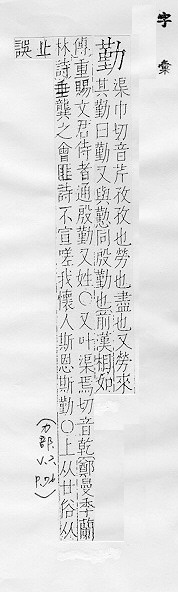 字彙
勤 渠巾切音芹孜孜也勞也盡也又勞來
其勤曰勤又與懃同殷勤也前漢相如
傳重賜文君侍者通殷勤又姓○又叶渠焉切音乾鄭曼季蘭
林詩垂龔之會匪詩不宣嗟我懷人斯恩斯勤○上从廿俗从
止誤
(力部
V.2
P.76)